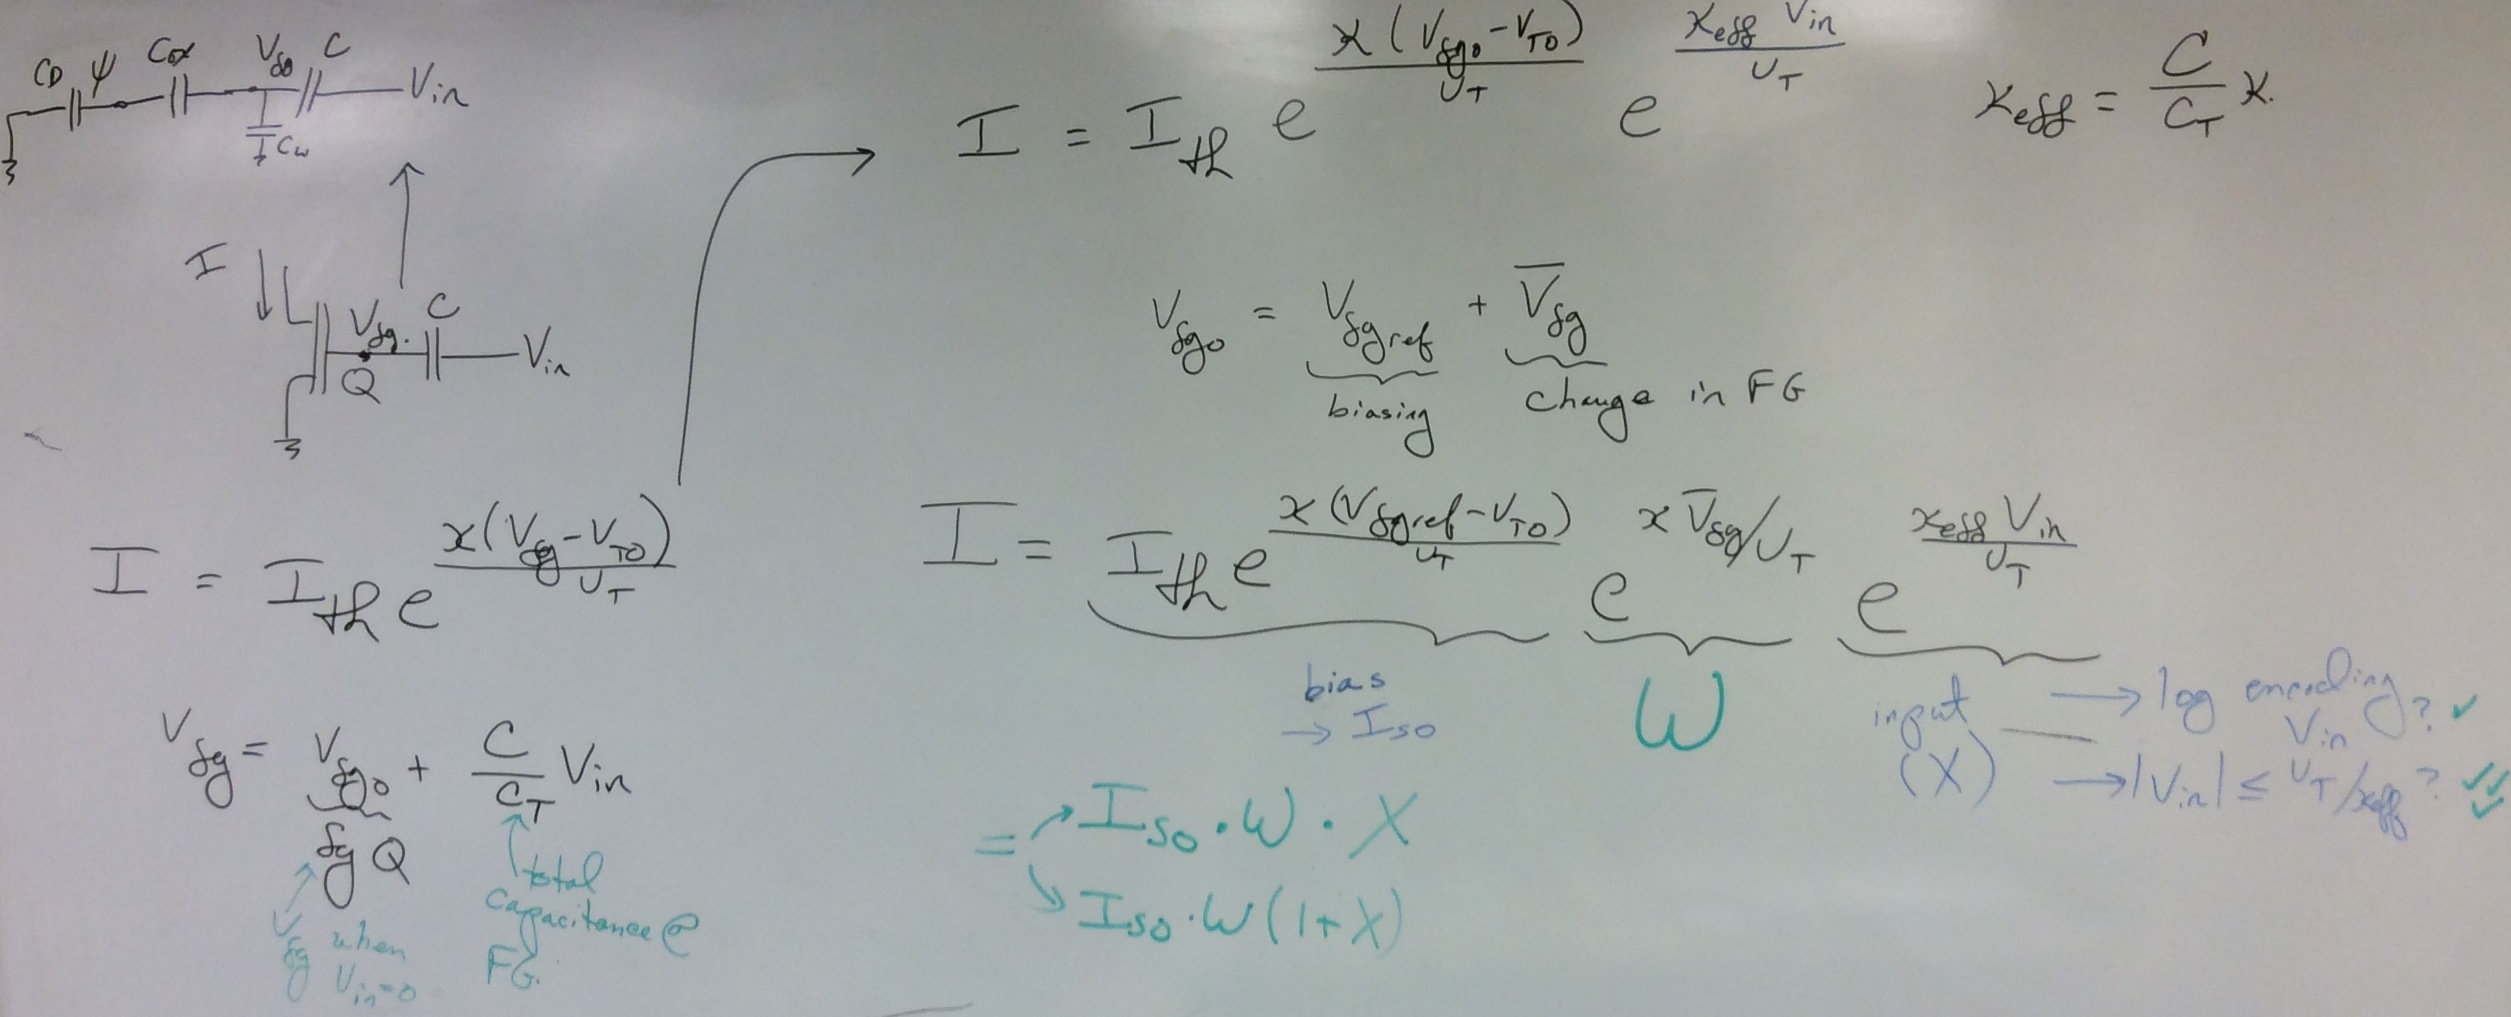 C_D ψ C_ox V_fg C V_in
C_w
I V_fg. C V_in
Q
I = I_th e^{κ(V_fg - V_T0)/U_T}
V_fg = V_fg0 + C/C_T V_in
fg Q
V_fg when V_in=0
total
capacitance @
FG.
I = I_th e^{κ(V_fg0 - V_T0)/U_T} e^{κ_eff V_in/U_T}
κ_eff = C/C_T κ.
V_fg0 = V_fgref + V̅_fg
biasing change in FG
I = I_th e^{κ(V_fgref - V_T0)/U_T} e^{κ V̅_fg/U_T} e^{κ_eff V_in/U_T}
bias
→ I_so
W
input
(X)
→ log encoding? ✓
V_in
→ |V_in| ≤ U_T/κ_eff? ✓✓
= I_so · W · X
I_so · W (1+X)